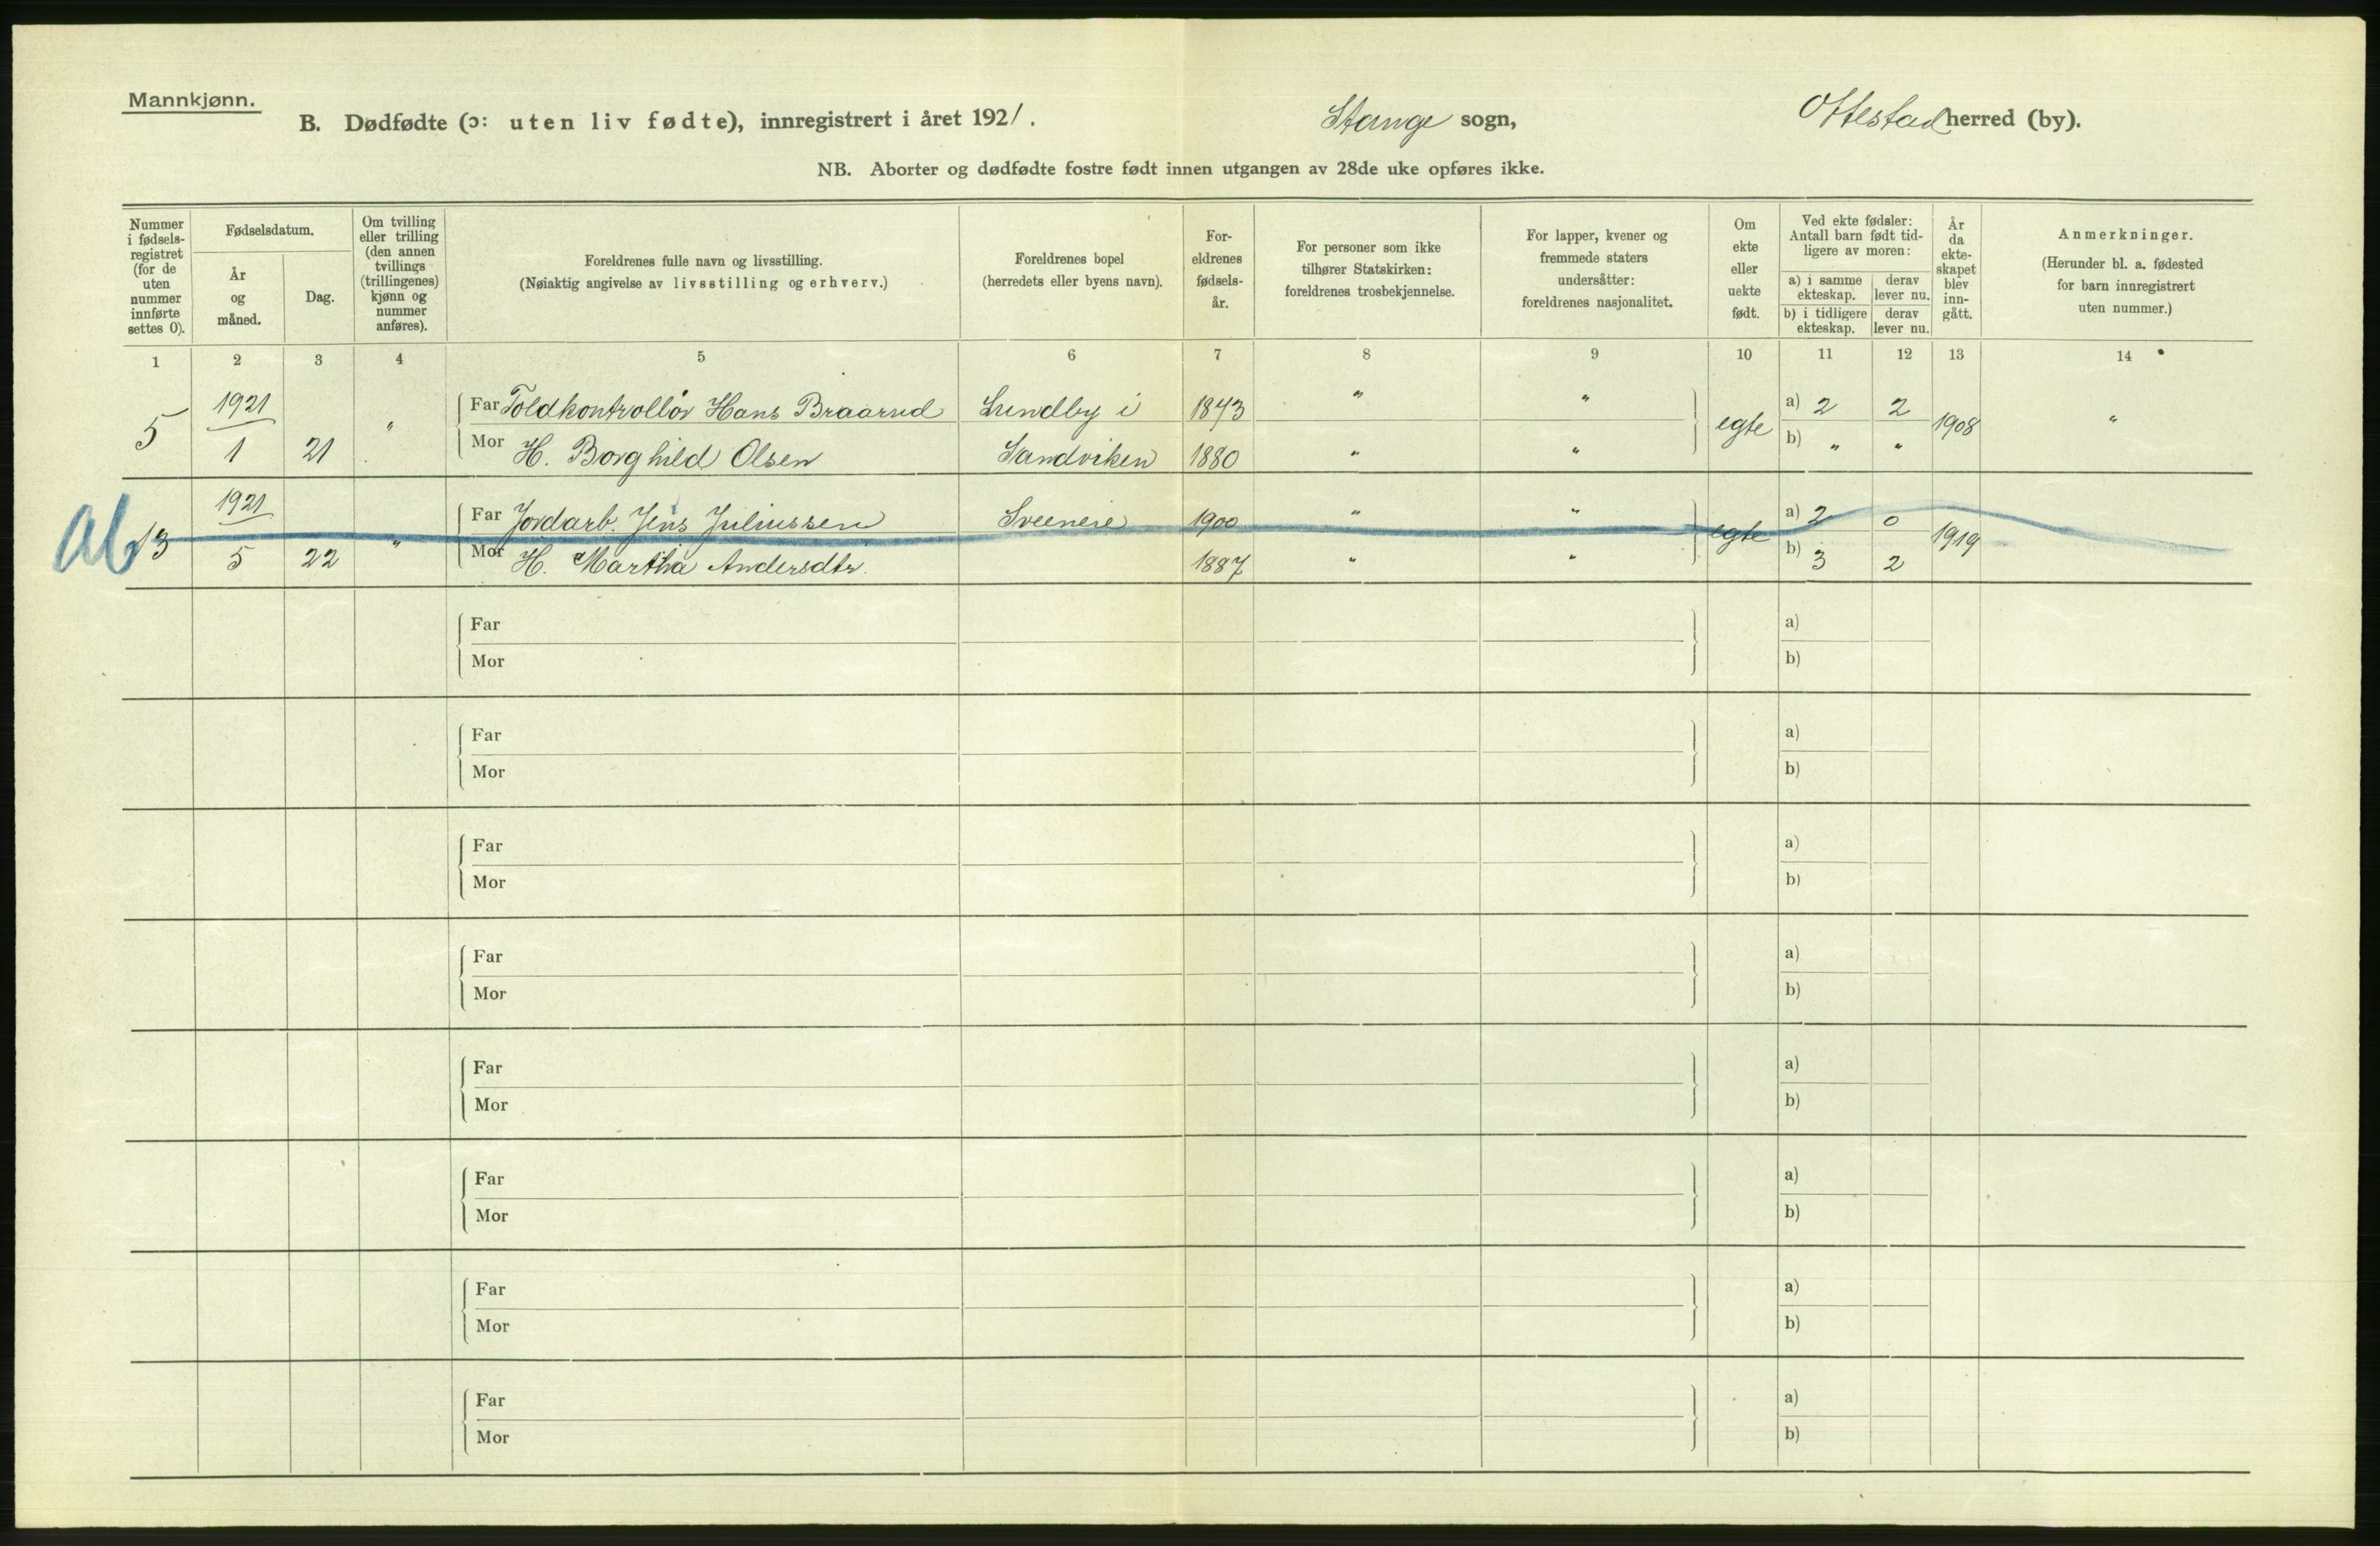 Mannkjønn.
B. Dødfødte (ɔ: uten liv fødte), innregistrert i året 1921. Stange sogn, Ottestad herred (by).
NB. Aborter og dødfødte fostre født innen utgangen av 28de uke opføres ikke.
Nummer i fødsels-registret (for de uten nummer innførte settes 0).
Fødselsdatum.
År og måned.
Dag.
Om tvilling eller trilling (den annen tvillings (trillingenes) kjønn og nummer anføres).
Foreldrenes fulle navn og livsstilling.
(Nøiaktig angivelse av livsstilling og erhverv.)
Foreldrenes bopel
(herredets eller byens navn).
For-eldrenes fødsels-år.
For personer som ikke tilhører Statskirken: foreldrenes trosbekjennelse.
For lapper, kvener og fremmede staters undersåtter: foreldrenes nasjonalitet.
Om ekte eller uekte født.
Ved ekte fødsler: Antall barn født tid-ligere av moren:
a) i samme ekteskap. derav lever nu.
b) i tidligere ekteskap. derav lever nu.
År da ekte-skapet blev inn-gått.
Anmerkninger.
(Herunder bl. a. fødested for barn innregistrert uten nummer.)
1 2 3 4 5 6 7 8 9 10 11 12 13 14
5 1921 1 21 " Far Toldkontrollör Hans Braarud Lundby i 1843 " " egte a) 2 2 1908 "
Mor H. Borghild Olsen Sandviken 1880 " " b) " "
Ab 13 1921 5 22 " Far Jordarb. Jens Juliussen 1900 " " egte a) 2 0 1919
Mor H. Martha Andersdtr. 1887 " " b) 3 2
Far a)
Mor b)
Far a)
Mor b)
Far a)
Mor b)
Far a)
Mor b)
Far a)
Mor b)
Far a)
Mor b)
Far a)
Mor b)
Far a)
Mor b)